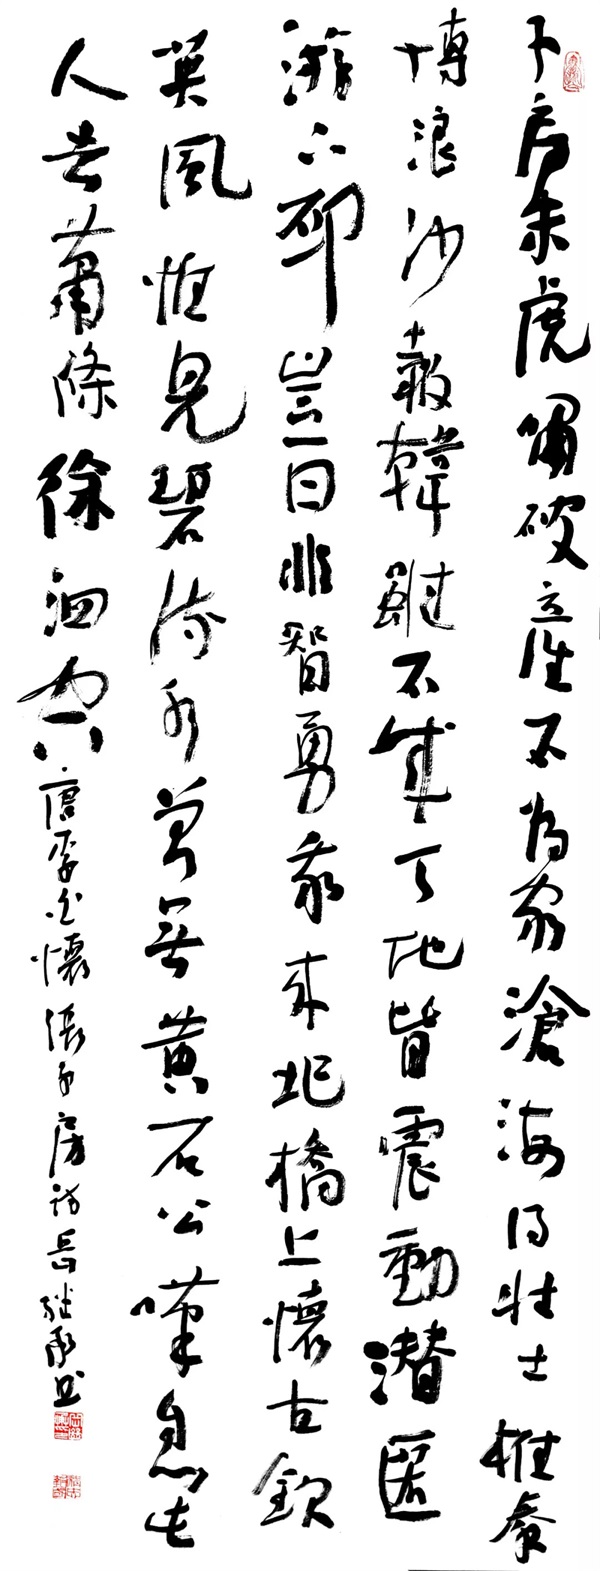 子房未虎嘯破產不為家滄海得壯士椎秦
博浪沙報韓雖不成天地皆震動潛匿
游下邳豈曰非智勇我來圯橋上懷古欽
英風惟見碧流水曾無黃石公嘆息此
人去蕭條徐泗空 唐李白懷張子房詩